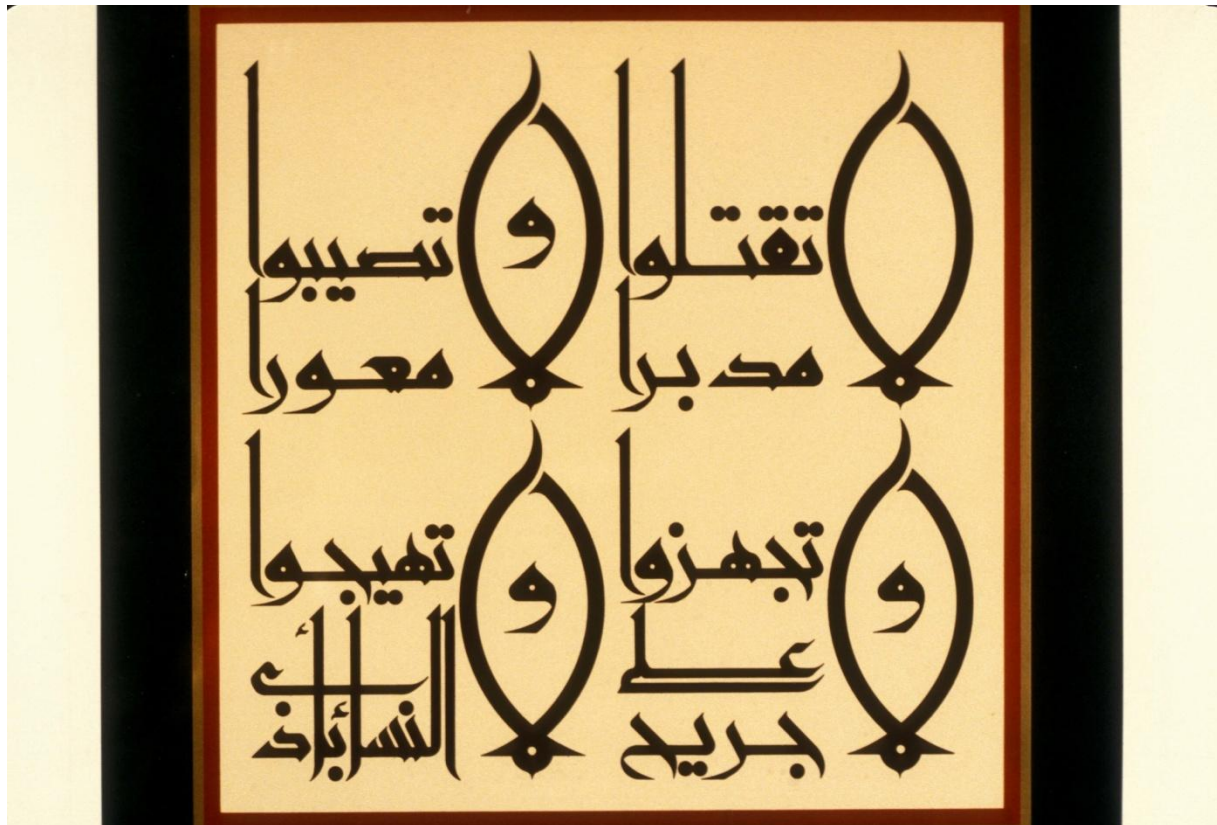 لا تقتلوا مدبرا
ولا تصيبوا معورا
ولا تجهزوا على جريح
ولا تهيجوا النساء بأذى